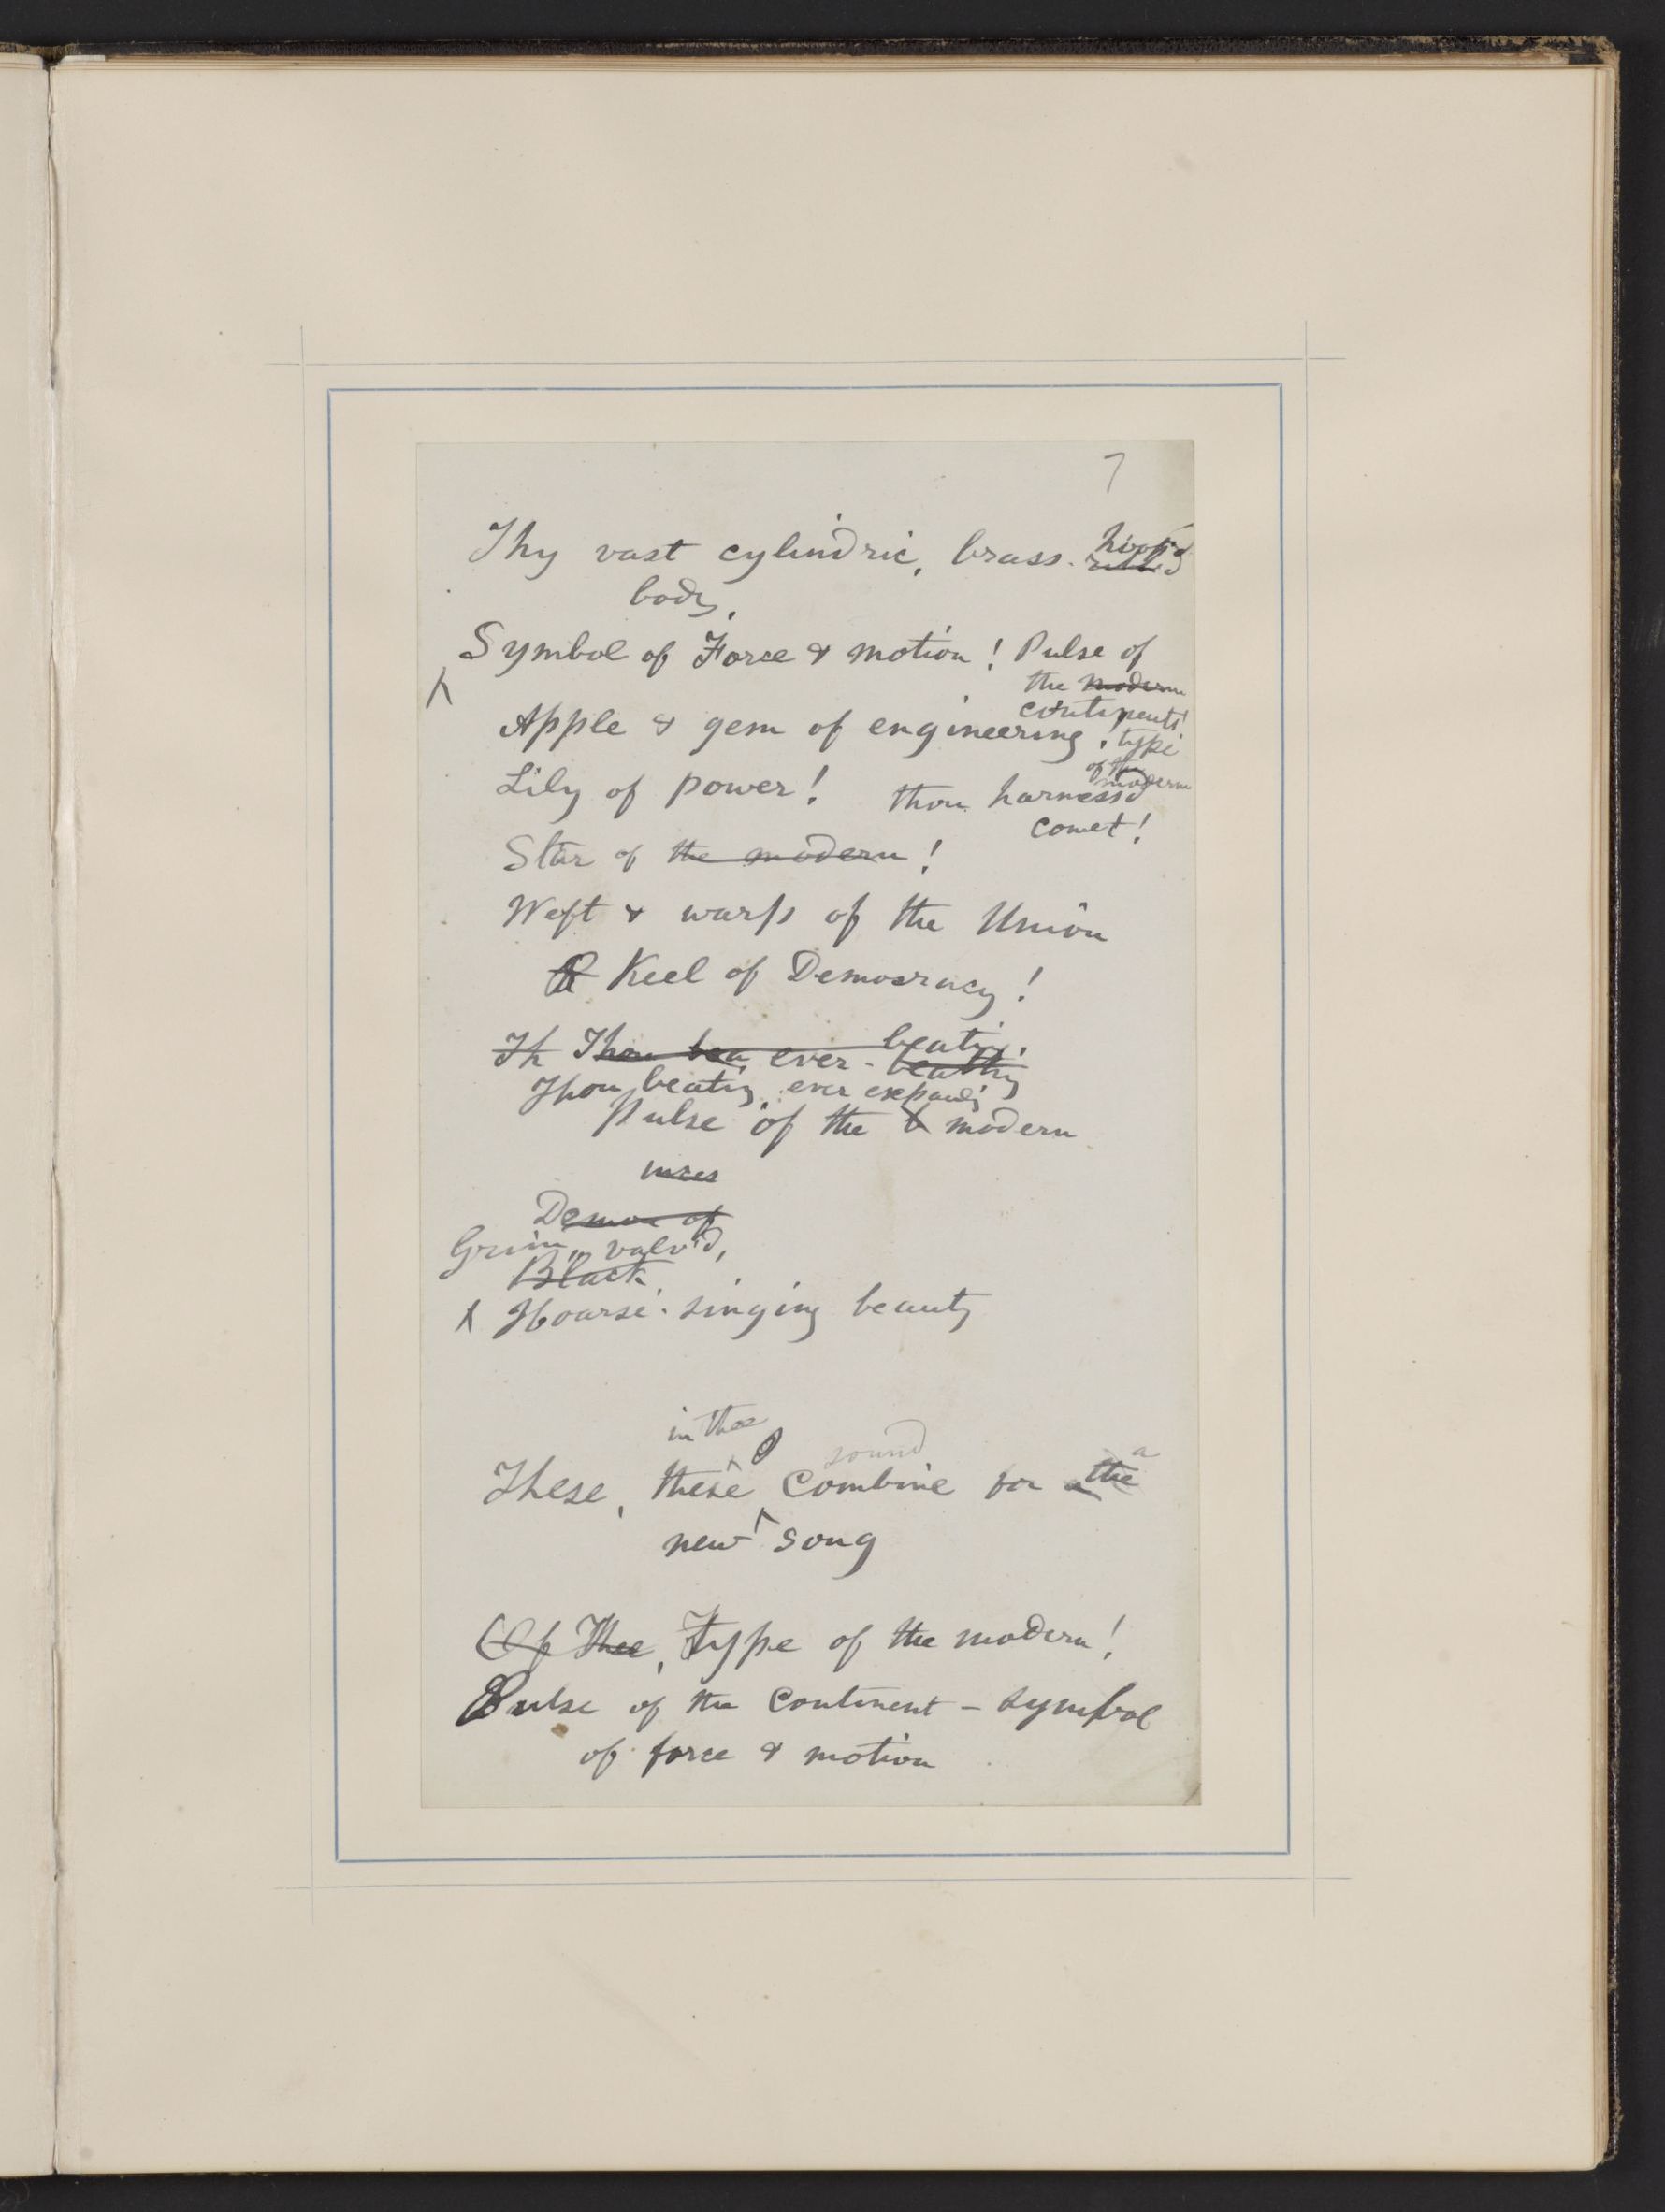 7
Thy vast cylindric, brass-hoop'd
body,
Symbol of Force & motion! Pulse of
the modern
continents!
Apple & gem of engineering, type
of the
modern
Lily of power! thou harness'd
comet!
Star of the modern!
Weft & warp of the Union
Keel of Democracy!
Th Thou bea ever-beating
beating
Thou, beating, ever expandi
Pulse of the modern
Demon of
Grim, valv'd,
Black
Hoarse-singing beauty
in thee
sound
These, these combine for a the a
new song
Of Thee, Type of the modern!
Pulse of the Continent – symbol
of force & motion